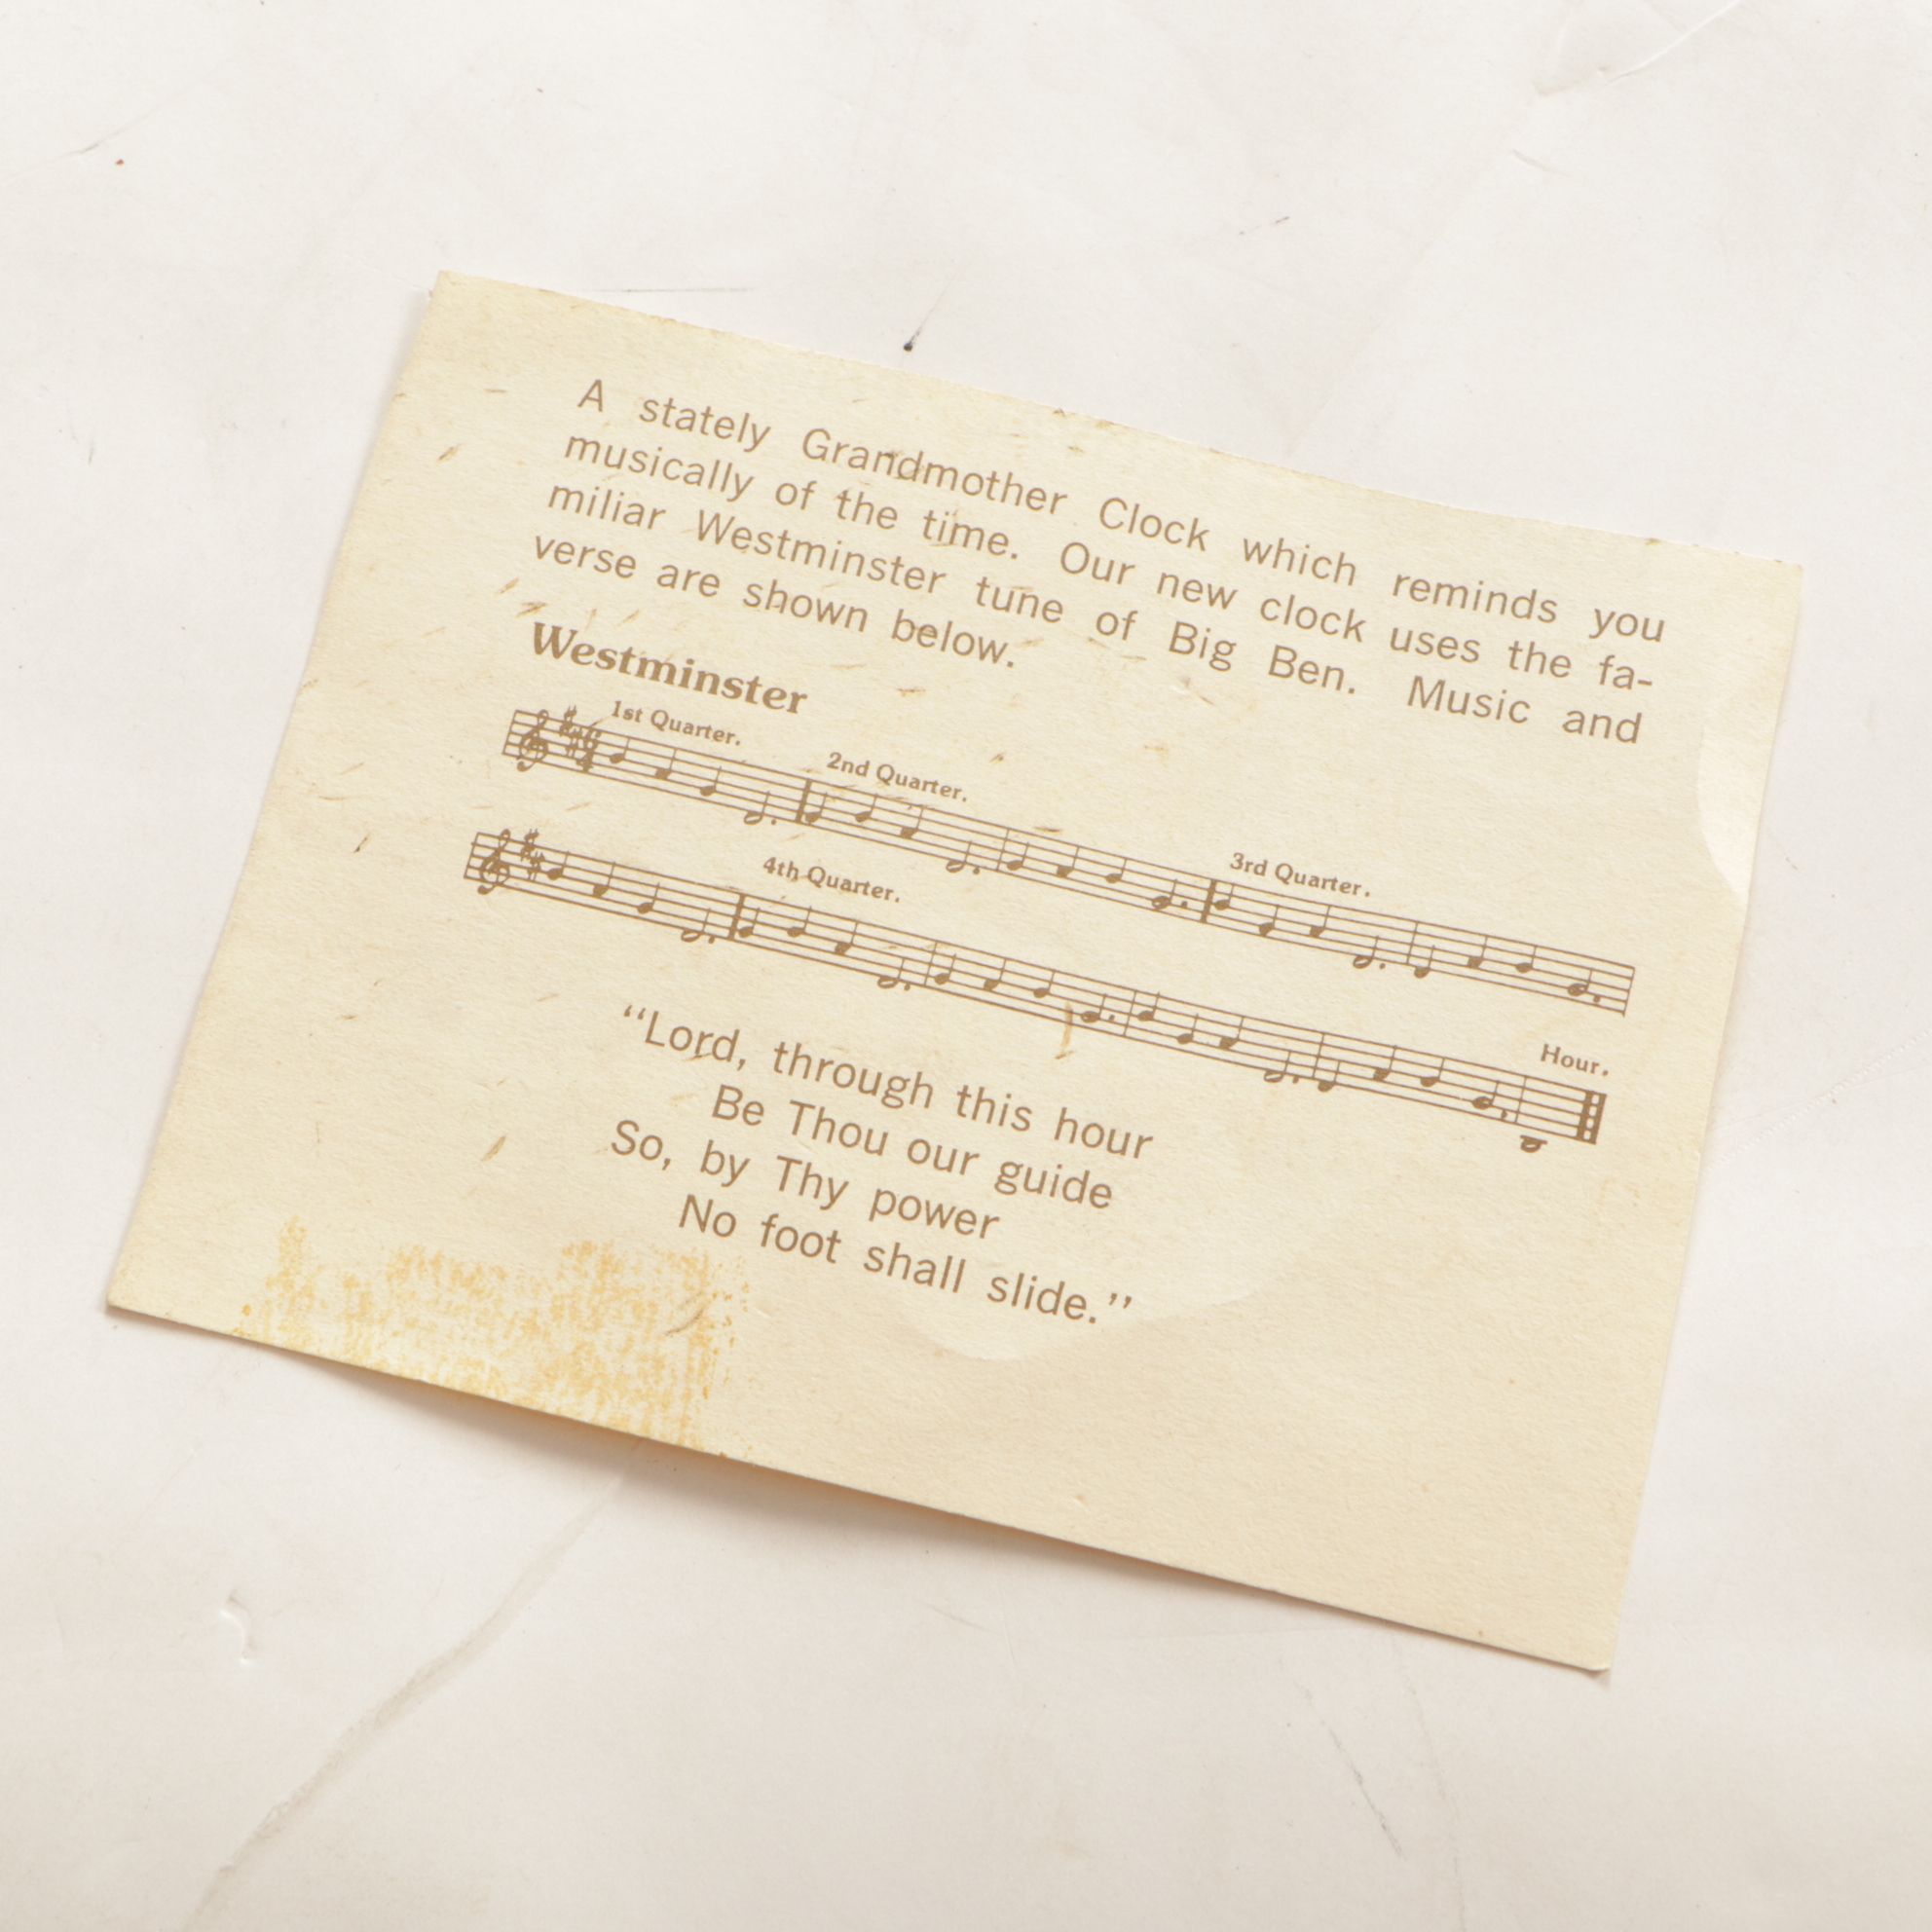 A stately Grandmother Clock which reminds you
musically of the time. Our new clock uses the fa-
miliar Westminster tune of Big Ben. Music and
verse are shown below.
Westminster
1st Quarter.
2nd Quarter.
3rd Quarter.
4th Quarter.
Hour.
“Lord, through this hour
Be Thou our guide
So, by Thy power
No foot shall slide.”